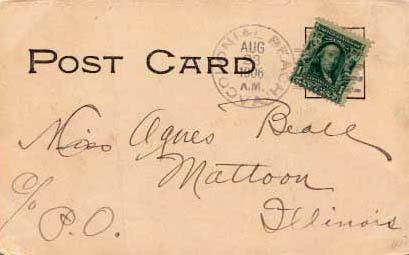 POST CARD
COLONIAL BEACH VA
AUG
1906
A.M.
Miss Agnes Beall
Mattoon
c/o P.O. Illinois